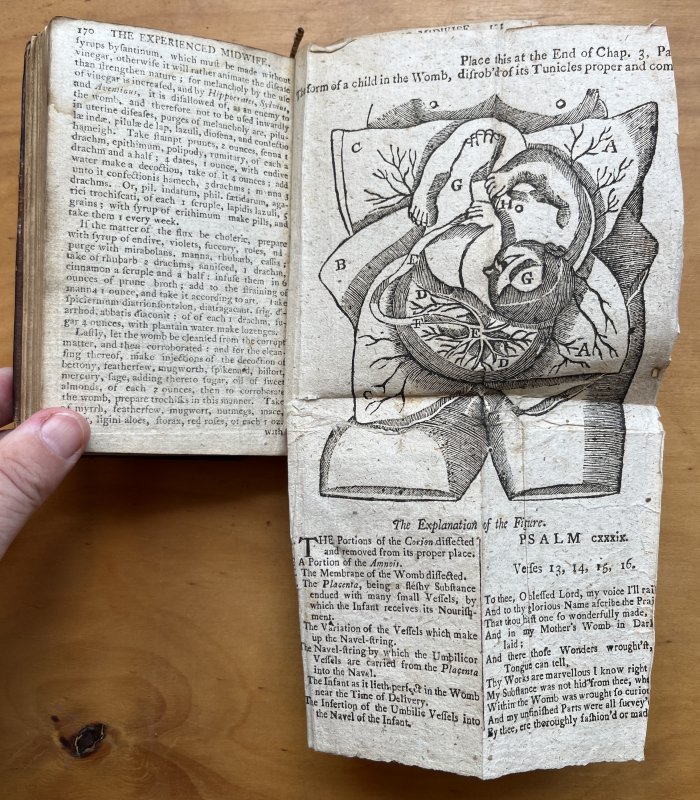 170 THE EXPERIENCED MIDWIFE.
syrups bysantinum, which must be made without
vinegar, otherwise it will rather animate the disease
than ſtrengthen nature; for melancholy by the uſe
of vinegar is increaſed, and by Hippocrates, Sylvius,
and Aventinus, it is diſallowed of, as an enemy to
the womb, and therefore not to be uſed inwardly
in uterine diſeaſes, purges of melancholy are, pilu-
læ indæ, pilulæ de lap, lazuli, dioſena, and confectio
hameigh. Take ſtampt prunes, 2 ounces, ſenna 1
drachm, epithimum, polipody, fumitary, of each a
drachm and a half; 4 dates, 1 ounce, with endive
water make a decoction, take of it 4 ounces; add
unto it confectionis hamech, 3 drachms; manna 3
drachms. Or, pil. indatum, phil. fœtidarum, aga-
rici trochiſcati, of each 1 ſcruple, lapidis lazuli, 5
grains; with ſyrup of erithimum make pills, and
take them 1 every week.
If the matter of the flux be choleric, prepare
with ſyrup of endive, violets, ſuccory, roſes, nd
purge with mirabolans, manna, rhubarb, caſſia;
take of rhubarb 2 drachms, anniſeed, 1 drachm,
cinnamon a ſcruple and a half: infuſe them in 6
ounces of prune broth; add to the ſtraining of
manna 1 ounce, and take it according to art. Take
ſpiciernum diatrionſontalon, diatragacant. frig. d-
arrhod, abbatis diaconit: of of each 1 drachm, ſu-
gar 4 ounces, with plantain water make lozenges.
Laſtly, let the womb be cleanſed from the corrupt
matter, and then corroborated: and for the clean-
ſing thereof, make injections of the decoction of
bettony, featherfew, mugworth, ſpikenard, biſtort,
mercury, ſage, adding thereto ſugar, oil of ſweet
almonds, of each 2 ounces, then to corroborate
the womb, prepare trochiſks in this manner. Take
of myrrh, featherfew, mugwort, nutmegs, mace,
ligini aloes, ſtorax, red roſes, of each 1 oz.
with
Place this at the End of Chap. 3, Pa
The form of a child in the Womb, diſrob'd of its Tunicles proper and com
C
A
G
Ho
B
E
G
D
F
E
A
D
C
The Explanation of the Figure.
THE Portions of the Corion diſſected
and removed from its proper place.
A Portion of the Amnois.
The Membrane of the Womb diſſected.
The Placenta, being a fleſhy Subſtance
endued with many ſmall Veſſels, by
which the Infant receives its Nouriſh-
ment.
The Variation of the Veſſels which make
up the Navel-ſtring.
The Navel-ſtring by which the Umbilicor
Veſſels are carried from the Placenta
into the Navel.
The Infant as it lieth perfect in the Womb
near the Time of Delivery.
The Inſertion of the Umbilic Veſſels into
the Navel of the Infant.
PSALM cxxxix.
Verſes 13, 14, 15, 16.
To thee, O bleſſed Lord, my voice I'll rai
And to thy glorious Name aſcribe the Praj
That thou haſt one ſo wonderfully made,
And in my Mother's Womb in Dark
laid;
And there thoſe Wonders wrought'ſt,
Tongue can tell,
Thy Works are marvellous I know right
My Subſtance was not hid from thee, whe
Within the Womb was wrought ſo curiou
And my unfiniſhed Parts were all ſurvey'
By thee, ere thoroughly faſhion'd or mad